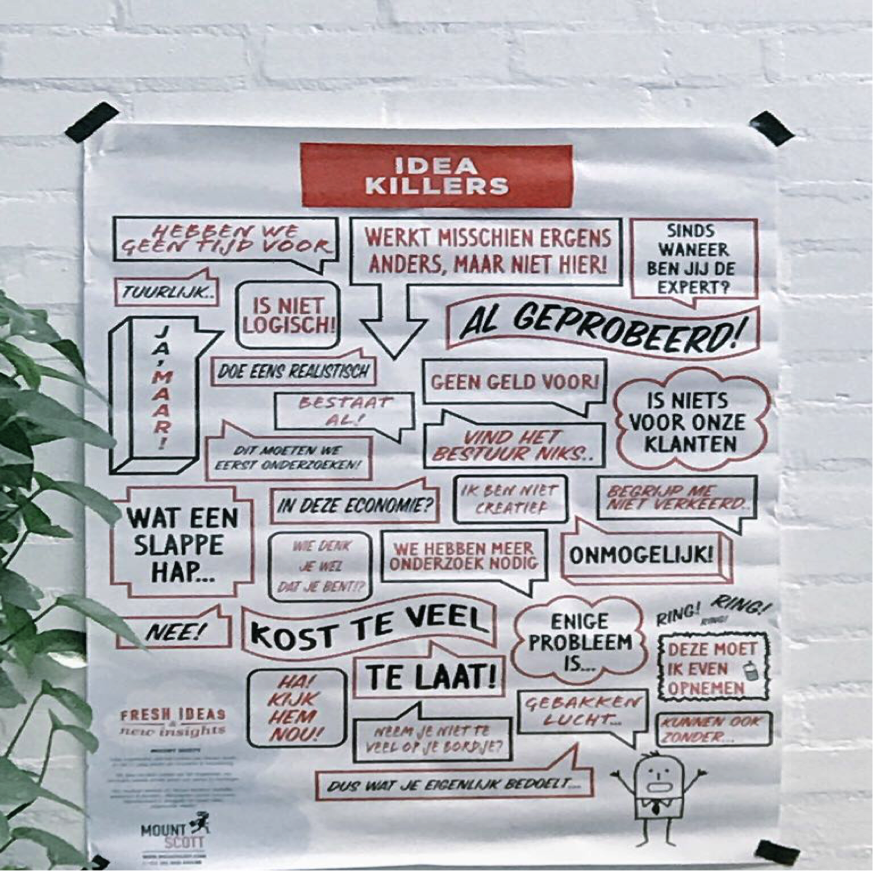 IDEA
KILLERS
HEBBEN WE
GEEN TIJD VOOR
WERKT MISSCHIEN ERGENS
ANDERS, MAAR NIET HIER!
SINDS
WANEER
BEN JIJ DE
EXPERT?
TUURLIJK..
IS NIET
LOGISCH!
AL GEPROBEERD!
JA, MAAR!
DOE EENS REALISTISCH
GEEN GELD VOOR!
IS NIETS
VOOR ONZE
KLANTEN
BESTAAT
AL!
DIT MOETEN WE
EERST ONDERZOEKEN!
VIND HET
BESTUUR NIKS..
WAT EEN
SLAPPE
HAP...
IN DEZE ECONOMIE?
IK BEN NIET
CREATIEF
BEGRIJP ME
NIET VERKEERD..
WIE DENK
JE WEL
DAT JE BENT!?
WE HEBBEN MEER
ONDERZOEK NODIG
ONMOGELIJK!
NEE!
KOST TE VEEL
ENIGE
PROBLEEM
IS...
RING! RING!
RING!
DEZE MOET
IK EVEN
OPNEMEN
TE LAAT!
HA!
KIJK
HEM
NOU!
GEBAKKEN
LUCHT...
KUNNEN OOK
ZONDER...
NEEM JE NIET TE
VEEL OP JE BORDJE?
DUS WAT JE EIGENLIJK BEDOELT...
FRESH IDEAS
&
new insights
MOUNT
SCOTT